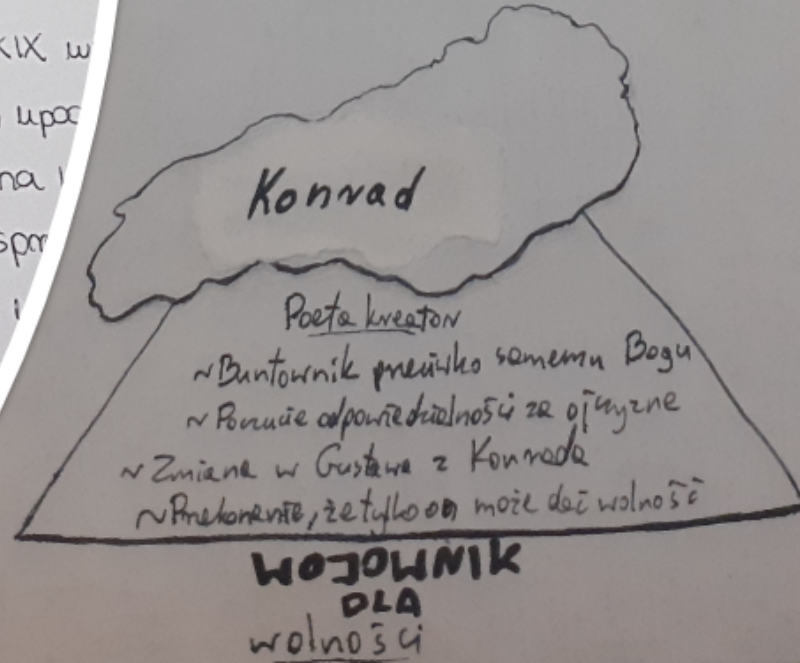 XIX w
upoc
na
spor
Konrad
Poeta kreator
~Buntownik przeciwko samemu Bogu
~Poczucie odpowiedzialności za ojczyznę
~Zmiana w Gustawa z Konrada
~Przekonanie, że tylko on może dać wolność
WOJOWNIK
DLA
wolności